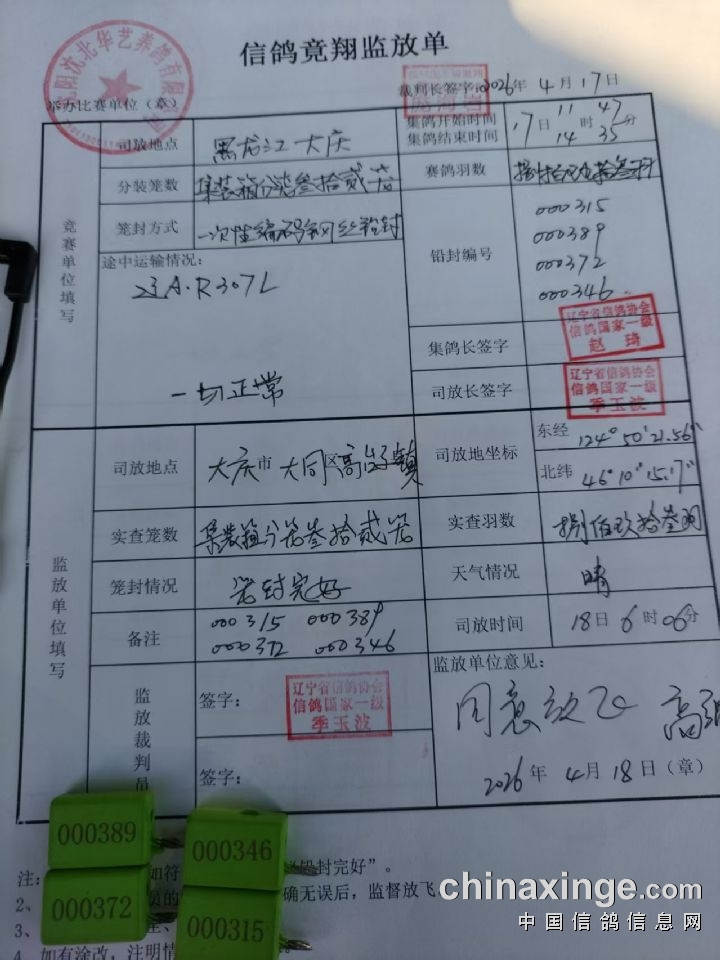 信鸽竞翔监放单
沈阳沈北华艺养鸽有限公司
举办比赛单位（章）
裁判长签字：
2026年 4月17日
司放地点 黑龙江大庆
集鸽开始时间 17日 11时47分
集鸽结束时间 14 35
分装笼数 集装箱分笼叁拾贰笼
赛鸽羽数 捌佰玖拾叁羽
笼封方式 一次性编码钢丝铅封
铅封编号
000315
000389
000372
000346
竞赛单位填写
途中运输情况：
辽A·R307L
一切正常
集鸽长签字 辽宁省信鸽协会
信鸽国家一级
赵琦
司放长签字 辽宁省信鸽协会
信鸽国家一级
季玉波
监放单位填写
司放地点 大庆市大同区高台子镇
司放地坐标
东经 124°50′21.56″
北纬 46°10″15.17″
实查笼数 集装箱分笼叁拾贰笼
实查羽数 捌佰玖拾叁羽
笼封情况 笼封完好
天气情况 晴
备注 000315 000389
000372 000346
司放时间 18日6时06分
监放裁判员
签字： 辽宁省信鸽协会
信鸽国家一级
季玉波
签字：
监放单位意见：
同意放飞 高
2026年 4月18日（章）
000389
000346
000372
000315
注：
如符
铅封完好”。
2、
员的
确无误后，监督放飞
3、
4、如有涂改，注明情
chinaxinge.com
中国信鸽信息网